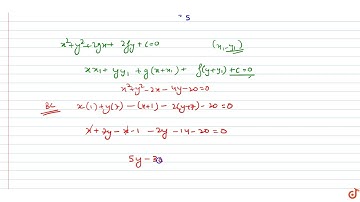 5
x²+y²+2gx+ 2fy+c=0 (x₁,y₁)
xx₁+ yy₁ +g(x+x₁)+ f(y+y₁)+c=0
x²+y²-2x-4y-20=0
x(1)+y(7) -(x+1) -2(y+7)-20=0
x+7y-x-1 -2y-14-20=0
5y-3